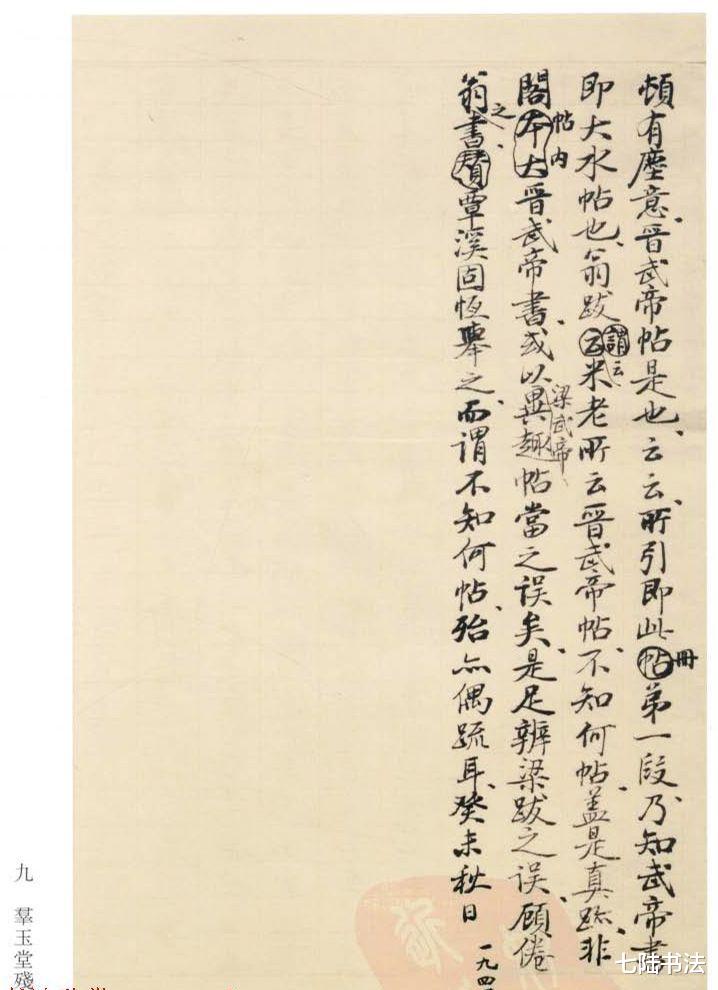 頓有塵意、晋武帝帖是也、云云、所引即此帖冊第一段、乃知武帝書
即大水帖也、翁跋云謂云米老所云晋武帝帖、不知何帖、蓋是真跡、非
閣本大帖内晋武帝書、或以梁武帝異趣帖當之誤矣、是足辨梁跋之誤、顧倦
翁書之、覃溪固恆舉之、而謂不知何帖、殆亦偶疏耳、癸未秋日
一九四
九 羣玉堂殘
七陆书法